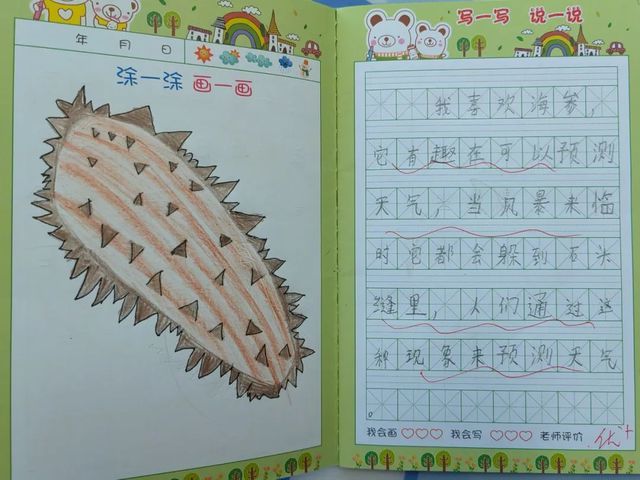 年 月 日
涂一涂 画一画
写一写 说一说
我喜欢海参，
它有趣在可以预测
天气，当风暴来临
时它都会躲到石头
缝里，人们通过这
种现象来预测天气
。
我会画 我会写 老师评价 优+